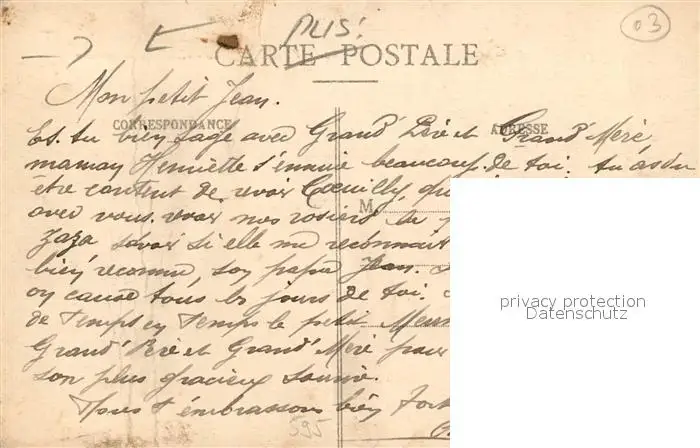 PLIS!
03
CARTE POSTALE
Mon petit Jean.
CORRESPONDANCE
ADRESSE
Es-tu bien sage avec Grand' Père et Grand' Mère
maman Henriette s'ennuie beaucoup de toi. tu as du
être content de revoir Coeuilly,
M
avec vous. revoir nos rosiers
Zaza savoir si elle me reconnait
bien reconnu, son papa Jean.
on cause tous les jours de toi.
privacy protection
Datenschutz
de temps en temps le petit
Grand' Père et Grand' Mère pour
son plus gracieux sourire.
Nous t'embrassons bien fort
595